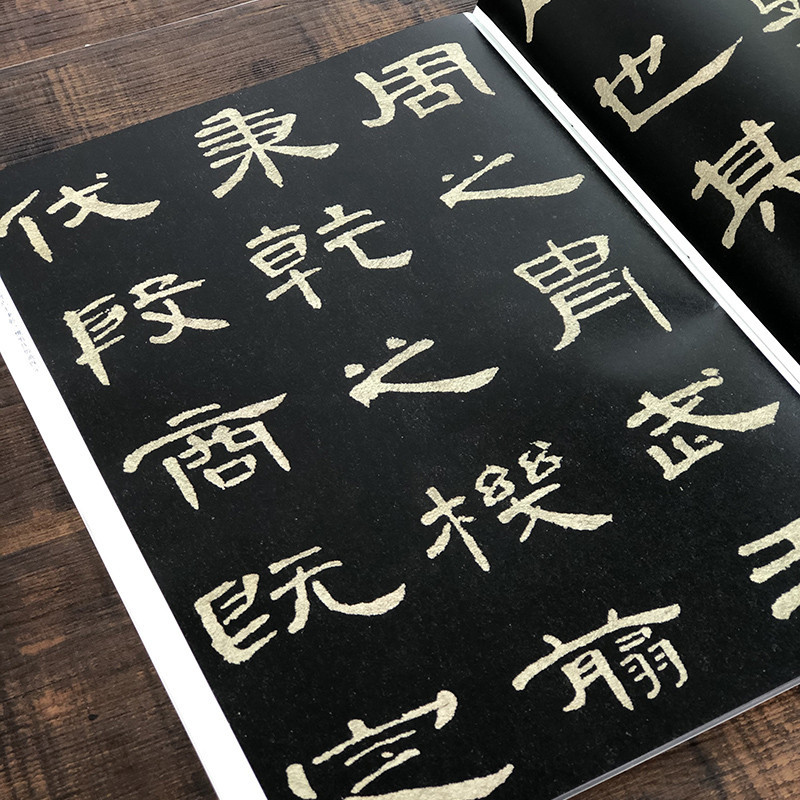 也其
周之胄武王
秉乾之機翦
伐殷商既定